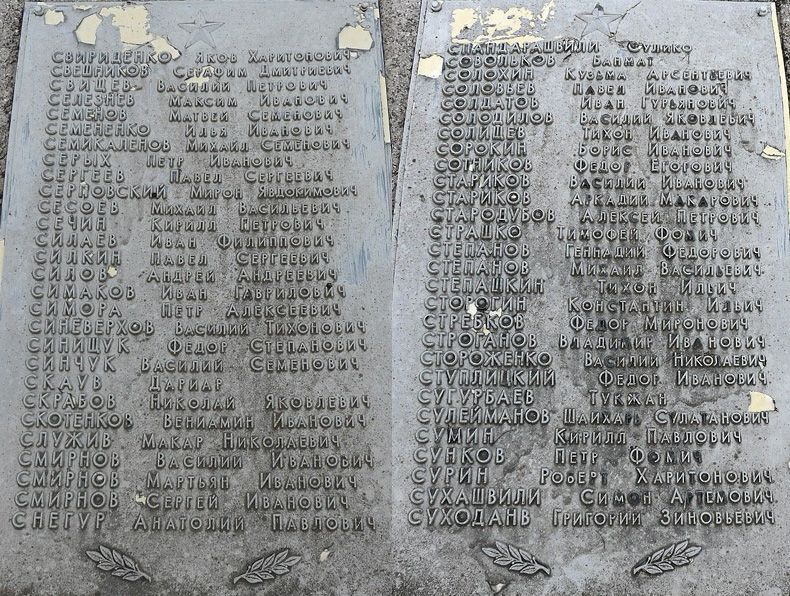 СВИРИДЕНКО ЯКОВ ХАРИТОНОВИЧ
СВЕШНИКОВ СЕРАФИМ ДМИТРИЕВИЧ
СВИЩЕВ ВАСИЛИЙ ПЕТРОВИЧ
СЕЛЕЗНЕВ МАКСИМ ИВАНОВИЧ
СЕМЕНОВ МАТВЕЙ СЕМЕНОВИЧ
СЕМЕНЕНКО ИЛЬЯ ИВАНОВИЧ
СЕМИКАЛЕНОВ МИХАИЛ СЕМЕНОВИЧ
СЕРЫХ ПЕТР ИВАНОВИЧ
СЕРГЕЕВ ПАВЕЛ СЕРГЕЕВИЧ
СЕРНОВСКИЙ МИРОН ЯВДОКИМОВИЧ
СЕСОЕВ МИХАИЛ ВАСИЛЬЕВИЧ
СЕЧИН КИРИЛЛ ПЕТРОВИЧ
СИЛАЕВ ИВАН ФИЛИППОВИЧ
СИЛКИН ПАВЕЛ СЕРГЕЕВИЧ
СИЛОВ АНДРЕЙ АНДРЕЕВИЧ
СИМАКОВ ИВАН ГАВРИЛОВИЧ
СИМОРА ПЕТР АЛЕКСЕЕВИЧ
СИНЕВЕРХОВ ВАСИЛИЙ ТИХОНОВИЧ
СИНИЩУК ФЕДОР СТЕПАНОВИЧ
СИНЧУК ВАСИЛИЙ СЕМЕНОВИЧ
СКАУВ ДАРИАР
СКРАБОВ НИКОЛАЙ ЯКОВЛЕВИЧ
СКОТЕНКОВ ВЕНИАМИН ИВАНОВИЧ
СЛУЖИВ МАКАР НИКОЛАЕВИЧ
СМИРНОВ ВАСИЛИЙ ИВАНОВИЧ
СМИРНОВ МАРТЬЯН ИВАНОВИЧ
СМИРНОВ СЕРГЕЙ ИВАНОВИЧ
СНЕГУР АНАТОЛИЙ ПАВЛОВИЧ
СПАНДАРАШВИЛИ СУЛИКО
СОВОЛЬКОВ БАНМАТ
СОЛОХИН КУЗЬМА АРСЕНТЬЕВИЧ
СОЛОВЬЕВ ПАВЕЛ ИВАНОВИЧ
СОЛДАТОВ ИВАН ГУРЬЯНОВИЧ
СОЛОДИЛОВ ВАСИЛИЙ ЯКОВЛЕВИЧ
СОЛИЩЕВ ТИХОН ИВАНОВИЧ
СОРОКИН БОРИС ИВАНОВИЧ
СОТНИКОВ ФЕДОР ЕГОТОВИЧ
СТАРИКОВ ВАСИЛИЙ ИВАНОВИЧ
СТАРИКОВ АРКАДИЙ МАКАРОВИЧ
СТАРОДУБОВ АЛЕКСЕЙ ПЕТРОВИЧ
СТРАШКО ТИМОФЕЙ ФОМИЧ
СТЕПАНОВ ГЕННАДИЙ ФЕДОРОВИЧ
СТЕПАНОВ МИХАИЛ ВАСИЛЬЕВИЧ
СТЕПАШКИН ТИХОН ИЛЬИЧ
СТОРОГИН КОНСТАНТИН ИЛЬИЧ
СТРЕБКОВ ФЕДОР МИРОНОВИЧ
СТРОГАНОВ ВЛАДИМИР ИВАНОВИЧ
СТОРОЖЕНКО ВАСИЛИЙ НИКОЛАЕВИЧ
СТУПЛИЦКИЙ ФЕДОГ ИВАНОВИЧ
СУГУРБАЕВ ТУКЖАН
СУЛЕЙМАНОВ ШАИХАРЬ СУЛАТАНОВИЧ
СУМИН КИРИЛЛ ПАВЛОВИЧ
СУНКОВ ПЕТР ФОМИЧ
СУРИН РОБЕРТ ХАРИТОНОВИЧ
СУХАШВИЛИ СИМОН АРТЕМОВИЧ
СУХОДАНВ ГРИГОРИЙ ЗИНОВЬЕВИЧ